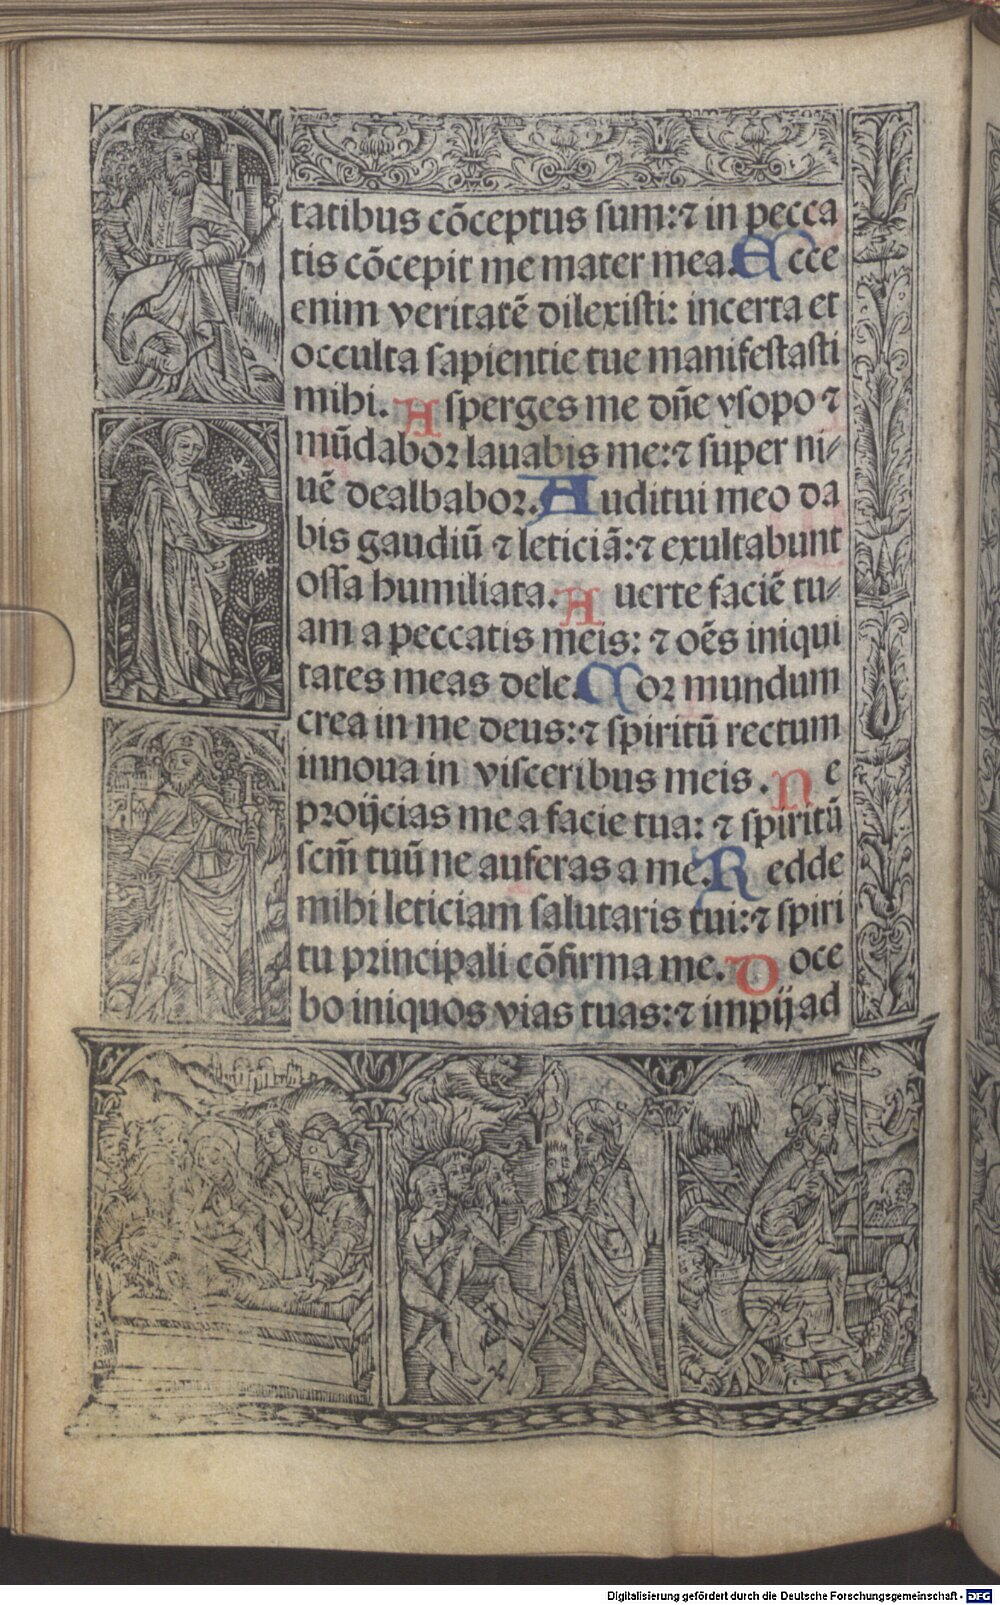 tatibus cõceptus sum:⁊ in pecca
tis cõcepit me mater mea. Ecce
enim veritatẽ dilexisti: incerta et
occulta sapientie tue manifestasti
mihi. Asperges me dñe ysopo ⁊
mũdabor lauabis me:⁊ super ni⸗
uẽ dealbabor. Auditui meo da
bis gaudiũ ⁊ leticiã:⁊ exultabunt
ossa humiliata. Auerte faciẽ tu⸗
am a peccatis meis: ⁊ oẽs iniqui
tates meas dele. Cor mundum
crea in me deus:⁊ spiritũ rectum
innoua in visceribus meis. Ne
proijcias me a facie tua: ⁊ spiritũ
scm̃ tuũ ne auferas a me. Redde
mihi leticiam salutaris tui:⁊ spiri
tu principali cõfirma me. Doce
bo iniquos vias tuas:⁊ impij ad
Digitalisierung gefördert durch die Deutsche Forschungsgemeinschaft - DFG